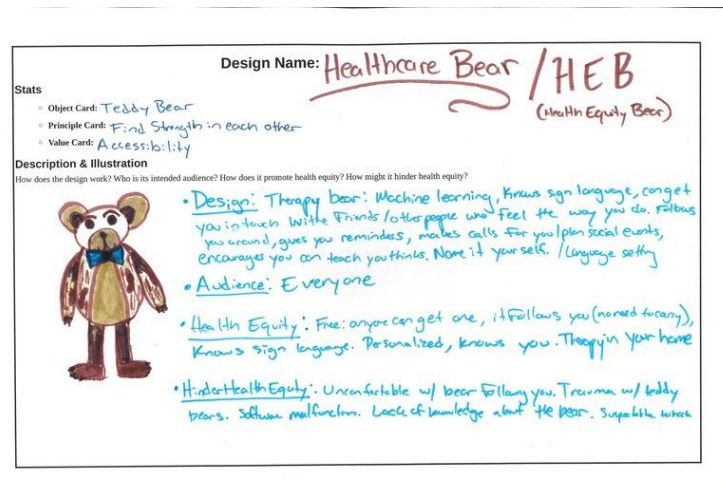 Design Name: Healthcare Bear / HEB
(Health Equity Bear)
Stats
Object Card: Teddy Bear
Principle Card: Find Strength in each other
Value Card: Accessibility
Description & Illustration
How does the design work? Who is its intended audience? How does it promote health equity? How might it hinder health equity?
• Design: Therapy bear: Machine learning, knows sign language, can get
you in touch with Friends/other people who feel the way you do. Follows
you around, gives you reminders, makes calls for you/plan social events,
encourages you can teach you things. Name it yourself. /Language setting
• Audience: Everyone
• Health Equity: Free: anyone can get one, it follows you (no need to carry),
knows sign language. Personalized, knows you. Therapy in your home
• Hinder Health Equity: Uncomfortable w/ bear following you. Trauma w/ teddy
bears. Software malfunction. Lack of knowledge about the bear.